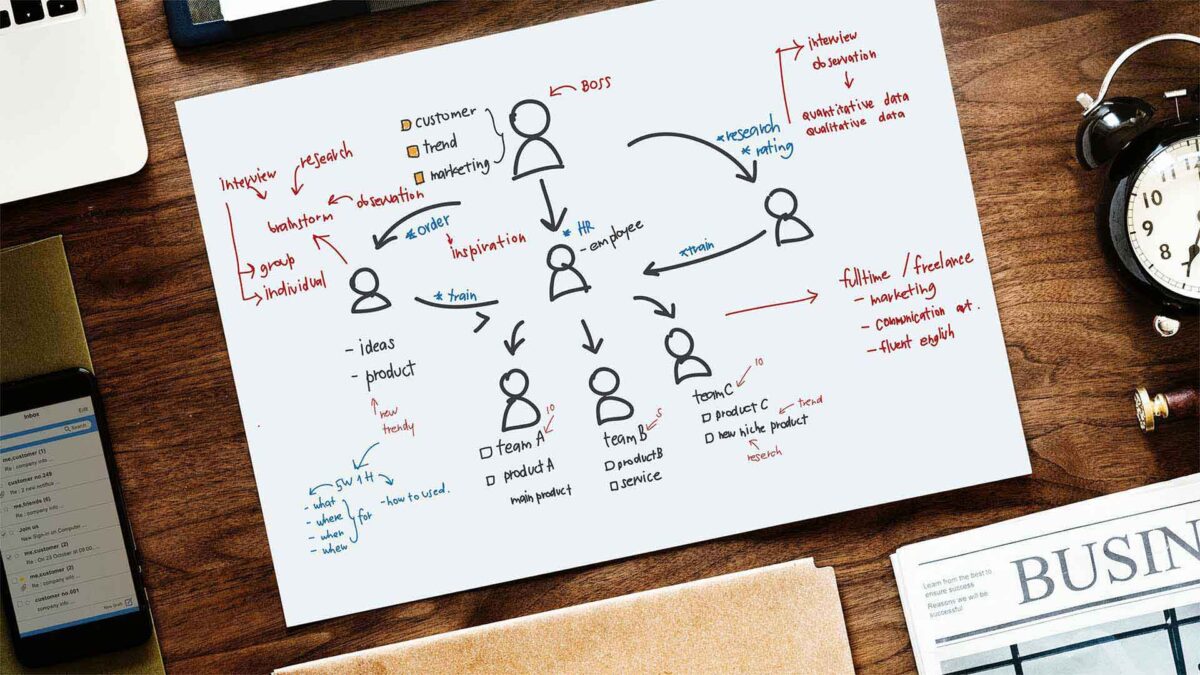 BOSS
customer
trend
marketing
interview
observation
quantitative data
qualitative data
*research
* rating
interview
research
brainstorm
observation
group
individual
*order
inspiration
* HR
- employee
*train
* train
- ideas
- product
new
trendy
5W1H
- what
- where
- when
- whew
for
- how to used.
team A
10
product A
main product
team B
5
productB
service
teamC
10
product C
trend
new niche product
reserch
fulltime / freelance
- marketing
- communication
- fluent english
Inbox
Edit
Search
me,customer (1)
Re : company info ...
customer no.249
Re : 2 new notifica ...
me,friends (6)
Re : company info ...
Join us
New Sign-in on Computer ...
me,customer (2)
Re : On 23 October at 09:00. ...
me,customer (2)
Re : company info ...
customer no.001
company info ...
New draft
10
9
8
7
6
Learn from the best to
ensure success
Reasons we will be
successful
BUSIN